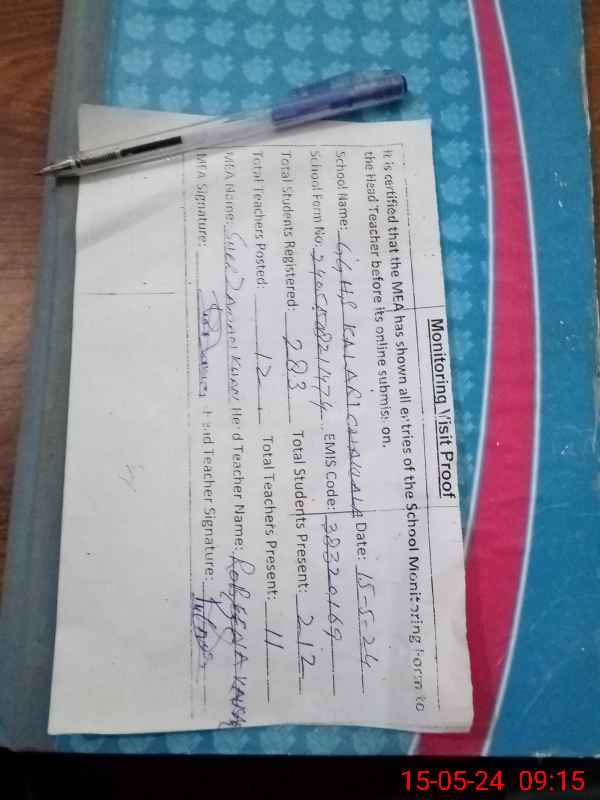 Monitoring Visit Proof
It is certified that the MEA has shown all entries of the School Monitoring Form to
the Head Teacher before its online submission.
School Name: GGHS KALARI Date: 15-5-24
School Form No: EMIS Code: 38320169
Total Students Registered: 283 Total Students Present: 212
Total Teachers Posted: 12 Total Teachers Present: 11
MEA Name: Head Teacher Name: ROBEENA KAUSAR
MEA Signature: Head Teacher Signature:
15-05-24 09:15